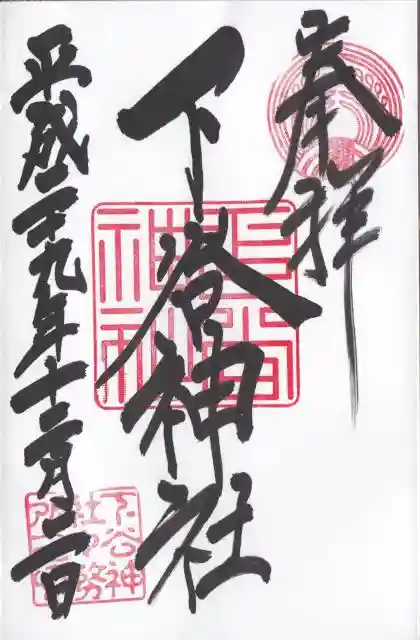 奉拝
下谷神社
平成二十九年十二月二日
下谷神社
下谷神社社務所